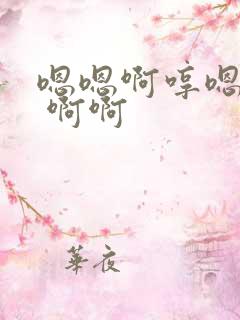 嗯嗯啊哼嗯
啊啊
華夜